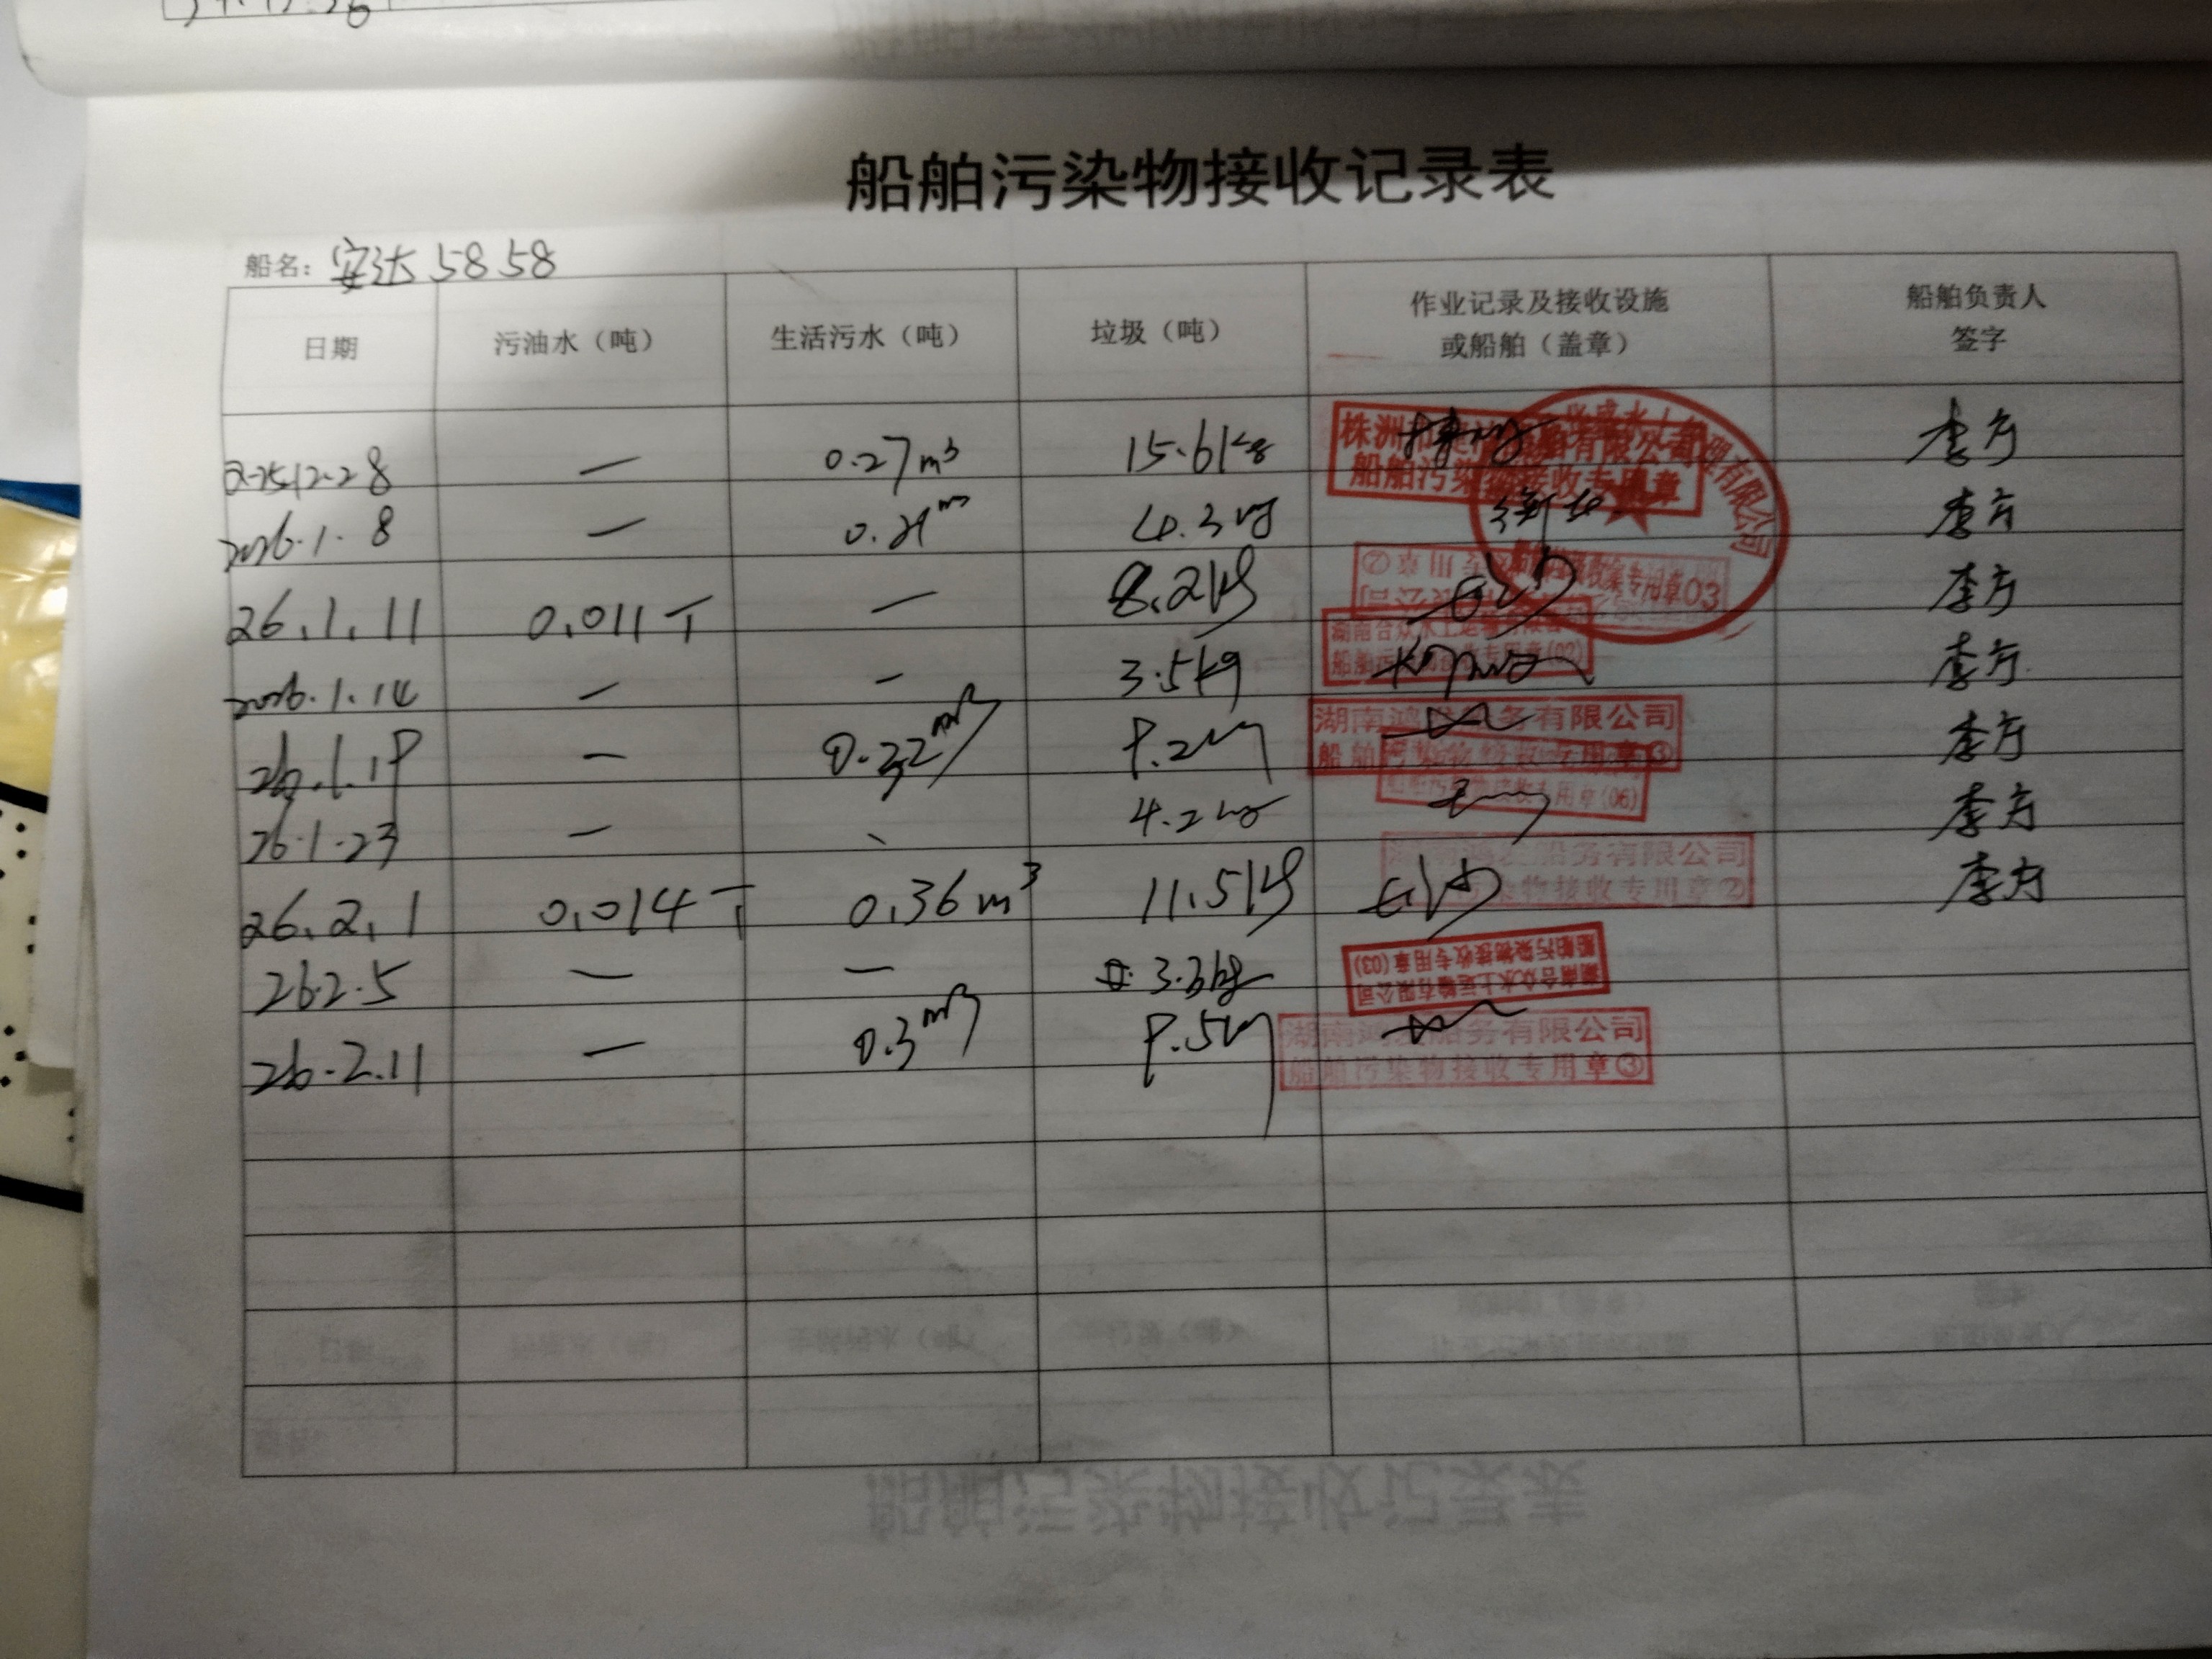 船舶污染物接收记录表
船名：安达5858
日期 污油水（吨） 生活污水（吨） 垃圾（吨） 作业记录及接收设施或船舶（盖章） 船舶负责人签字
12.28 — 0.27m³ 15.61kg 李方
2026.1.8 — 4.3kg 李方
26.1.11 0.011T — 8.2kg 李方
2026.1.14 — — 3.5kg 李方
26.1.19 — 0.32m³ 9.2kg 李方
26.1.23 — 、 4.2kg 李方
26.2.1 0.014T 0.36m³ 11.5kg 李方
26.2.5 — — 3.3kg
26.2.11 — 0.3m³ 9.5kg
株洲
船舶污染物接收专用章
理有限公司
专用章03
湖南合众水上运输有限公司
船舶污染物接收专用章(02)
湖南鸿发船务有限公司
船舶污染物接收专用章③
接收专用章(06)
湖南鸿发船务有限公司
污染物接收专用章②
湖南合众水上运输有限公司
船舶污染物接收专用章(03)
湖南鸿发船务有限公司
船舶污染物接收专用章③